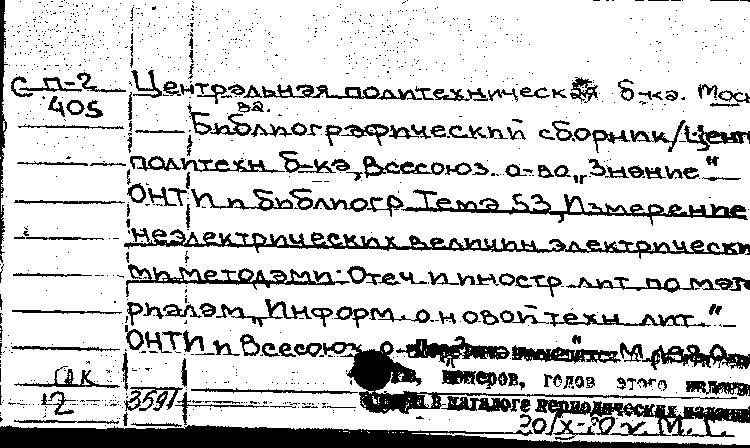 С п-2 Центральная политехническая б-ка. Моск
405 ва.
Библиографический сборник/Цент
политехн б-ка, Всесоюз. о-во „Знание"
ОНТИ и библиогр Тема 53, Измерение
неэлектрических величин электрически
ми методами: Отеч и иностр лит по мате
риалам „Информ. о новой техн лит."
ОНТИ и Всесоюз о-
номеров, годов этого издан
12 3591 в каталоге периодических издани
30/X-70 г. М. Г.